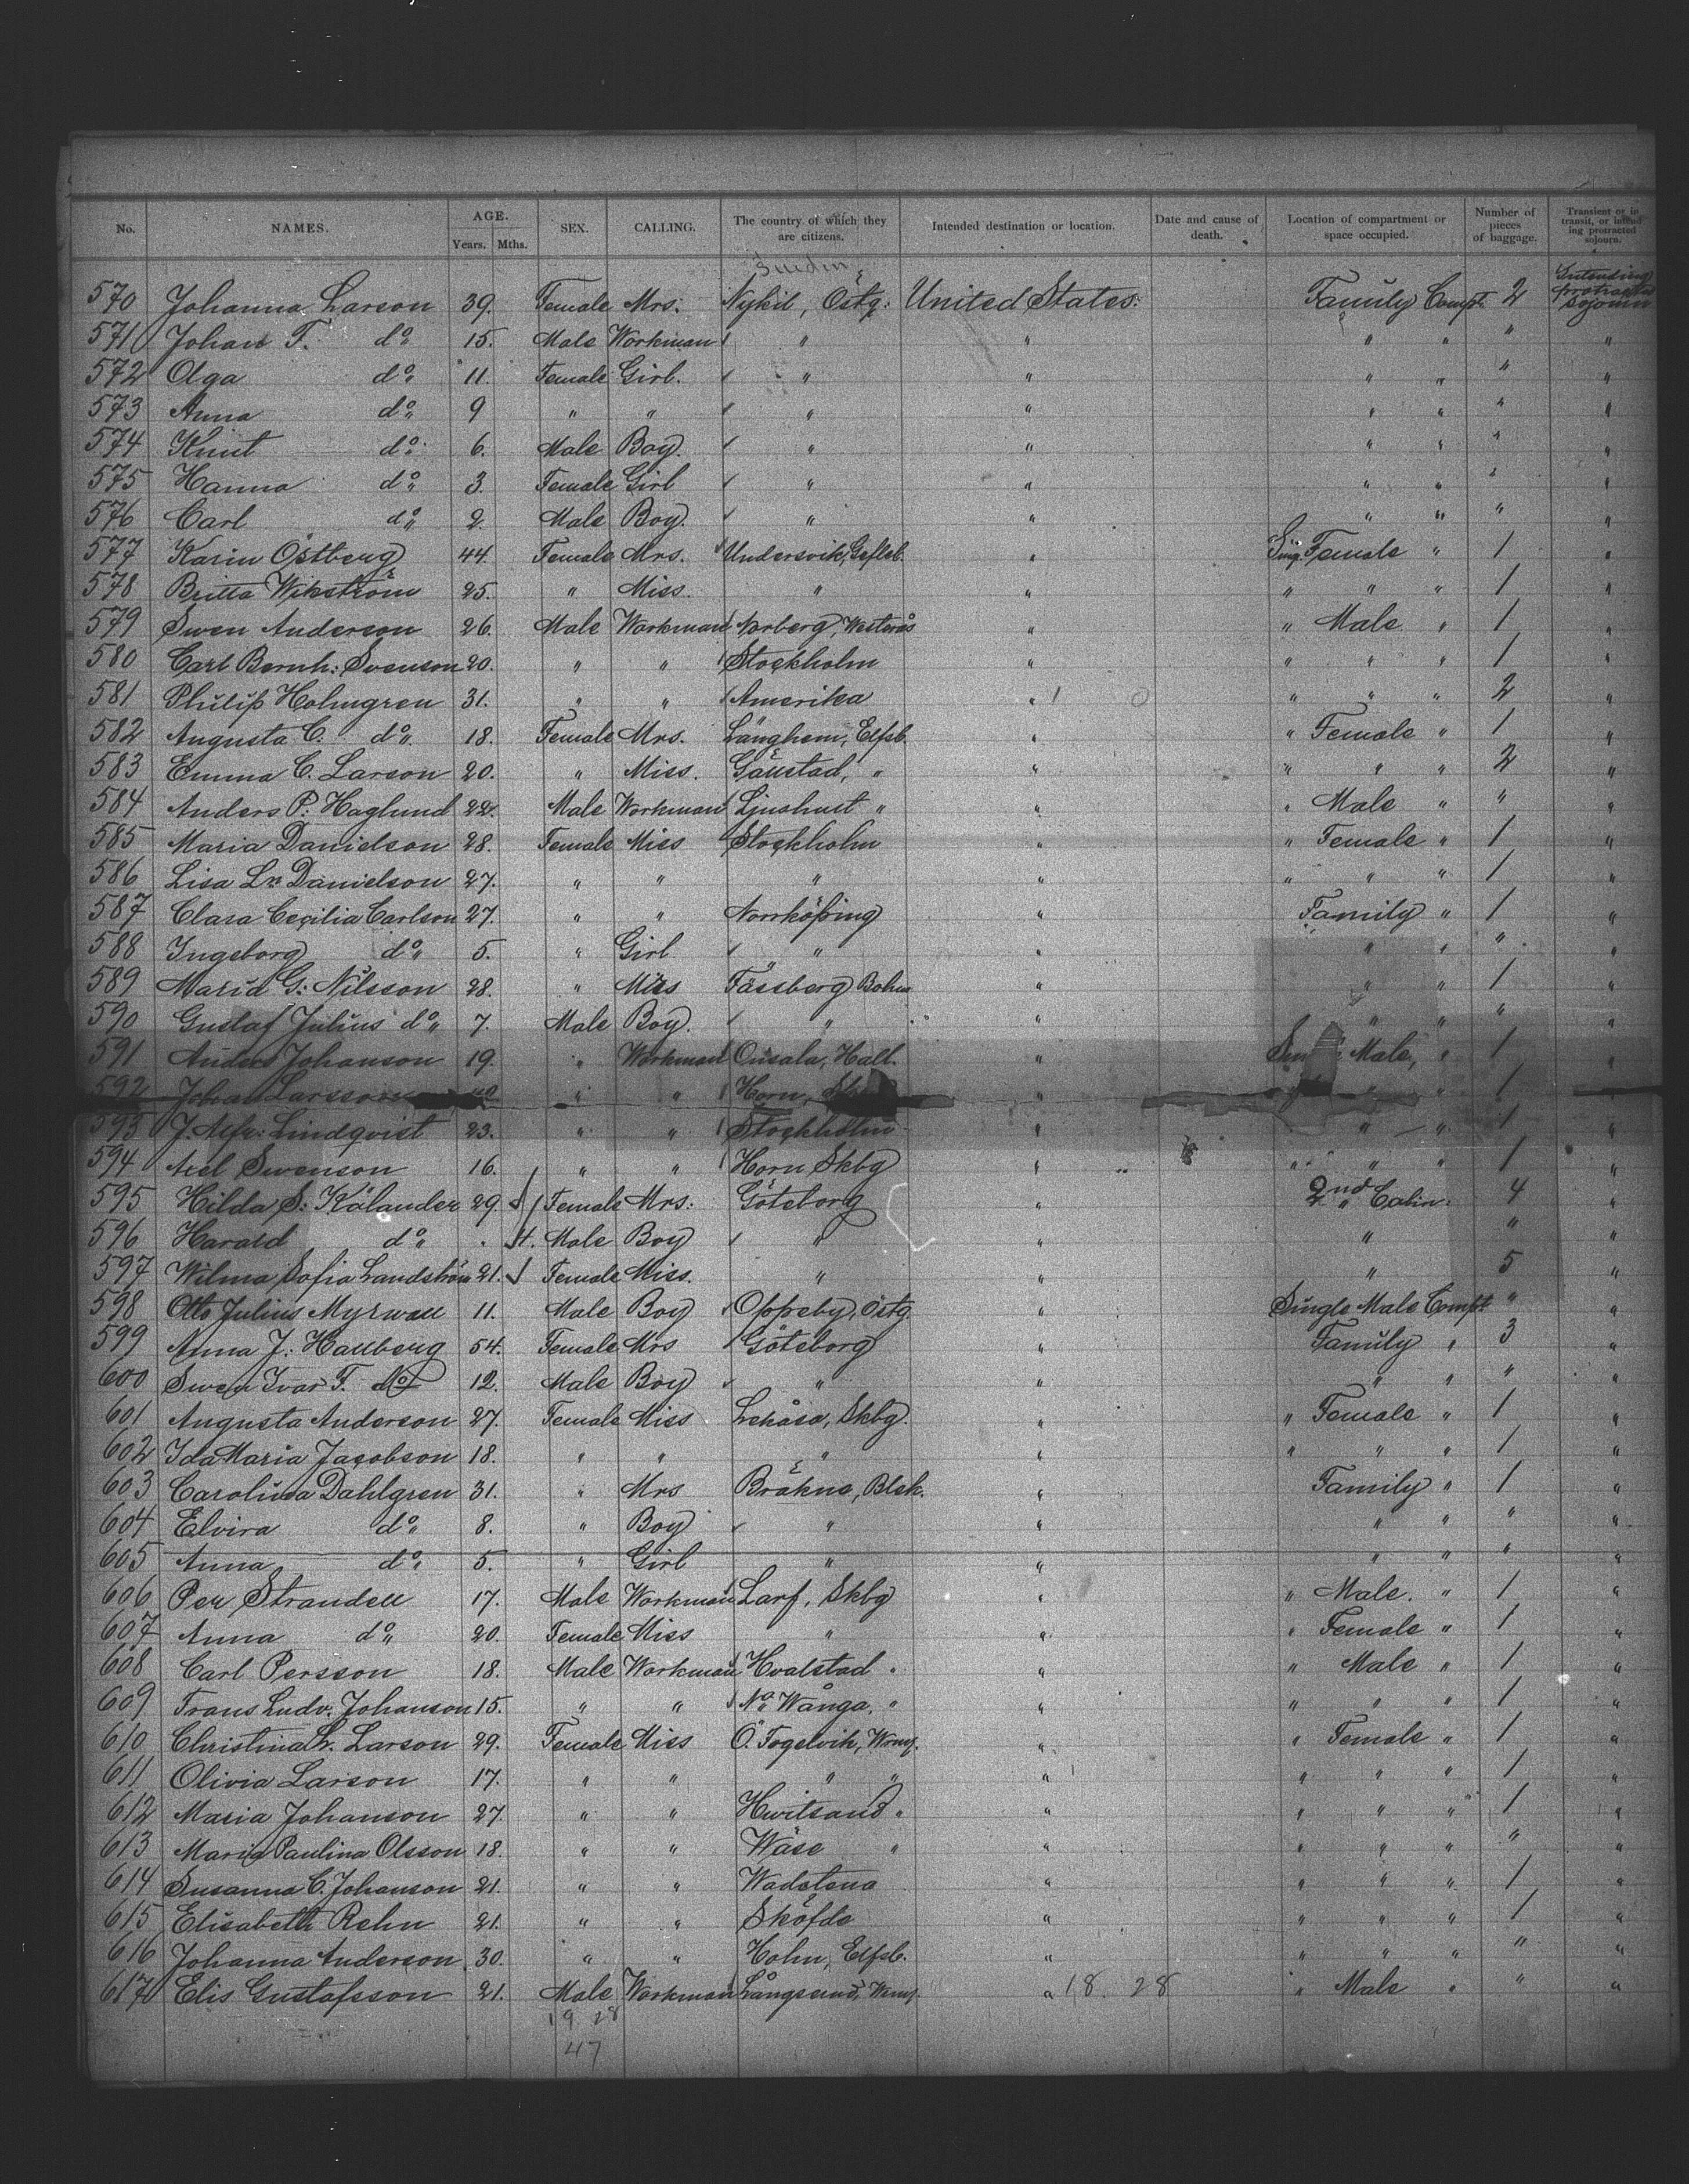 No. NAMES. AGE. Years. Mths. SEX. CALLING. The country of which they are citizens. Intended destination or location. Date and cause of death. Location of compartment or space occupied. Number of pieces of baggage. Transient or in transit, or intending protracted sojourn.
570 Johanna Larson 39. Female Mrs. Nykil, Östg. United States. Family Compt. 2 Intending protracted sojourn
571 Johan F. do 15. Male Workman " " " " " "
572 Olga do 11. Female Girl. " " " " " "
573 Anna do 9 " " " " " " " "
574 Knut do 6. Male Boy. " " " " " "
575 Hanna do 3. Female Girl " " " " " "
576 Carl do 2. Male Boy. " " " " " "
577 Karin Östberg 44. Female Mrs. Undersvik, Gefleb. " Sing. Female " 1 "
578 Britta Wikström 25. " Miss. " " " " " 1 "
579 Swen Anderson 26. Male Workman Norberg, Westerås " " Male " 1 "
580 Carl Bernh: Svenson 20. " " Stockholm " " " " 1 "
581 Philip Holmgren 31. " " Amerika " 1 0 " " " 2 "
582 Augusta C. do 18. Female Mrs. Länghem, Elfsb. " " Female " 1 "
583 Emma C. Larson 20. " Miss. Gällstad, " " " " " 2 "
584 Anders P. Haglund 22. Male Workman Ljushult " " " Male " " "
585 Maria Danielson 28. Female Miss Stockholm " " Female " 1 "
586 Lisa Lª Danielson 27. " " " " " " " 1 "
587 Clara Cecilia Carlson 27. " " Norrköping " Family " 1 "
588 Ingeborg do 5. " Girl " " " " " " "
589 Maria G: Nilsson 28. " Miss Fässberg Bohm " " " 1 "
590 Gustaf Julius do 7. Male Boy. " " " " " "
591 Anders Johanson 19. " Workman Onsala, Hall. " Male, " 1 "
592 Johan Larsson " " Horn, " " " 1
593 J. Alfr: Lindqvist 23. " " Stockholm " " " 1 "
594 Axel Swenson 16. " " Horn Skbg " " " " 1 "
595 Hilda S: Kålander 29. Female Mrs: Göteborg " 2nd Cabin. 4 "
596 Harald do 4. Male Boy " " " " "
597 Wilma Sofia Landström 21. Female Miss. " " " 5 "
598 Otto Julius Myrwall 11. Male Boy Oppeby, Östg. " Single Male Compt. " "
599 Anna J: Hallberg 54. Female Mrs Göteborg " Family " 3 "
600 Swen Ivar F. do 12. Male Boy " " " " " "
601 Augusta Anderson 27. Female Miss Lekåsa, Skbg. " " Female " 1 "
602 Ida Maria Jacobson 18. " " " " " " " 1 "
603 Carolina Dahlgren 31. " Mrs Bräkne, Blek. " Family " 1 "
604 Elvira do 8. " Boy " " " " " "
605 Anna do 5. " Girl " " " " " "
606 Per Strandell 17. Male Workman Larf, Skbg " " Male. " 1 "
607 Anna do 20. Female Miss " " " Female " 1 "
608 Carl Persson 18. Male Workman Hvalstad " " " Male " 1 "
609 Frans Ludv. Johanson 15. " " Na Wånga, " " " " " 1 "
610 Christina Larson 29. Female Miss Ö. Fogelvik, Wrml. " " Female " 1 "
611 Olivia Larson 17. " " " " " " " " 1 "
612 Maria Johanson 27. " " Hwitsand " " " " " 1 "
613 Maria Paulina Olsson 18. " " Wäse " " " " " "
614 Susanna C. Johanson 21. " " Wadstena " " " " 1 "
615 Elisabeth Rehn 21. " " Sköfde " " " " 1 "
616 Johanna Anderson 30. " " Holm, Elfsb. " " " " " "
617 Elis Gustafsson 21. Male Workman Långserud, Wrml. " 18. 28 " Male " " "
19 28
47